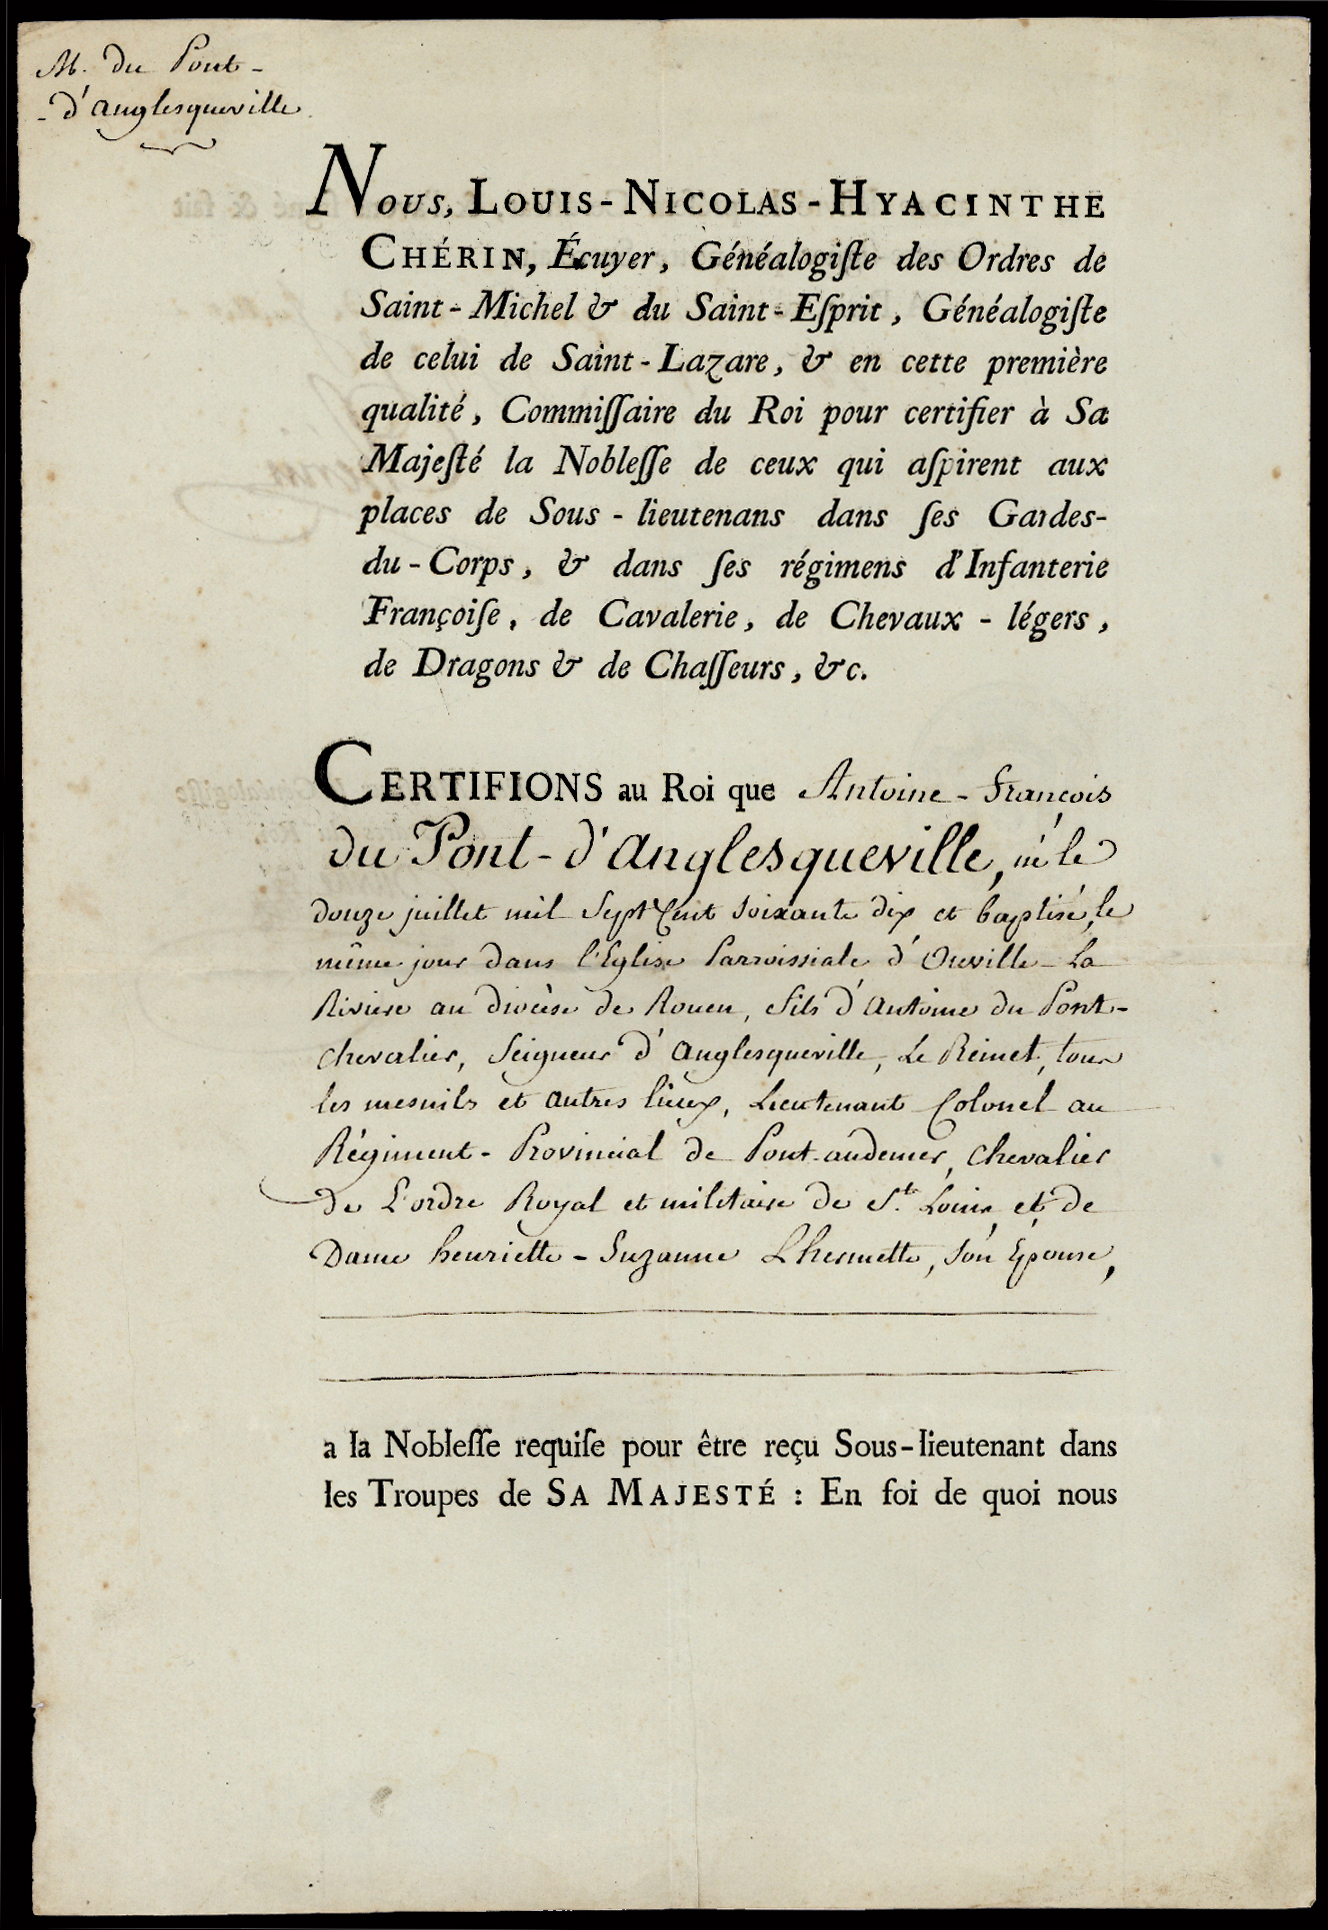 M. du Pont-
-d'anglesqueville.
Nous, Louis-Nicolas-Hyacinthe
Chérin, Écuyer, Généalogiſte des Ordres de
Saint-Michel & du Saint-Eſprit, Généalogiſte
de celui de Saint-Lazare, & en cette première
qualité, Commiſſaire du Roi pour certifier à Sa
Majeſté la Nobleſſe de ceux qui aſpirent aux
places de Sous-lieutenans dans ſes Gardes-
du-Corps, & dans ſes régimens d'Infanterie
Françoiſe, de Cavalerie, de Chevaux-légers,
de Dragons & de Chaſſeurs, &c.
CERTIFIONS au Roi que Antoine-François
du Pont-d'anglesqueville, né le
douze juillet mil Sept Cent soixante dix et baptisé, le
même jour dans l'Eglise Parroissiale d'Oreville-La
Riviere au diocèse de Rouen, fils d'Antoine du Pont-
chevalier, Seigneur d'anglesqueville, Le Reimet, tous
les mesnils et autres lieux, Lieutenant Colonel au
Régiment-Provincial de Pont-audemer, chevalier
de L'ordre Royal et militaire de St. Louis et de
Dame henriette-Suzanne Lhermette, son Epouse,
a la Nobleſſe requiſe pour être reçu Sous-lieutenant dans
les Troupes de SA MAJESTÉ : En foi de quoi nous